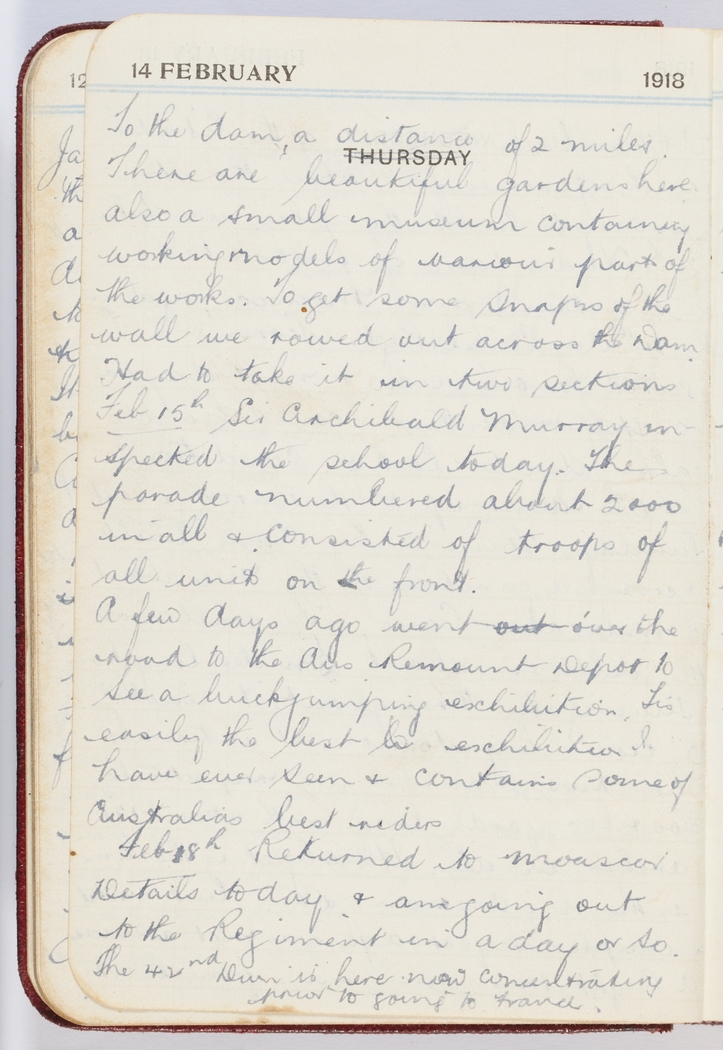 14 FEBRUARY 1918
THURSDAY
To the dam, a distance of 2 miles.
There are beautiful gardens here
also a small museum containing
working models of various part of
the works. To get some snaps of the
wall we rowed out across the Dam.
Had to take it in two sections
Feb 15th Sir Archibald Murray in-
spected the school today. The
parade numbered about 2000
in all & consisted of troops of
all units on the front.
A few days ago went out over the
road to the Aus Remount Depot to
see a buckjumping exhibition. Tis
easily the best exhibition I
have ever seen & contains some of
Australias best riders
Feb 18th Returned to Moascar
Details today & am going out
to the Regiment in a day or so.
The 42nd Divn is here now concentrating
prior to going to France.
12
Ja
th
a
It
b
a
f